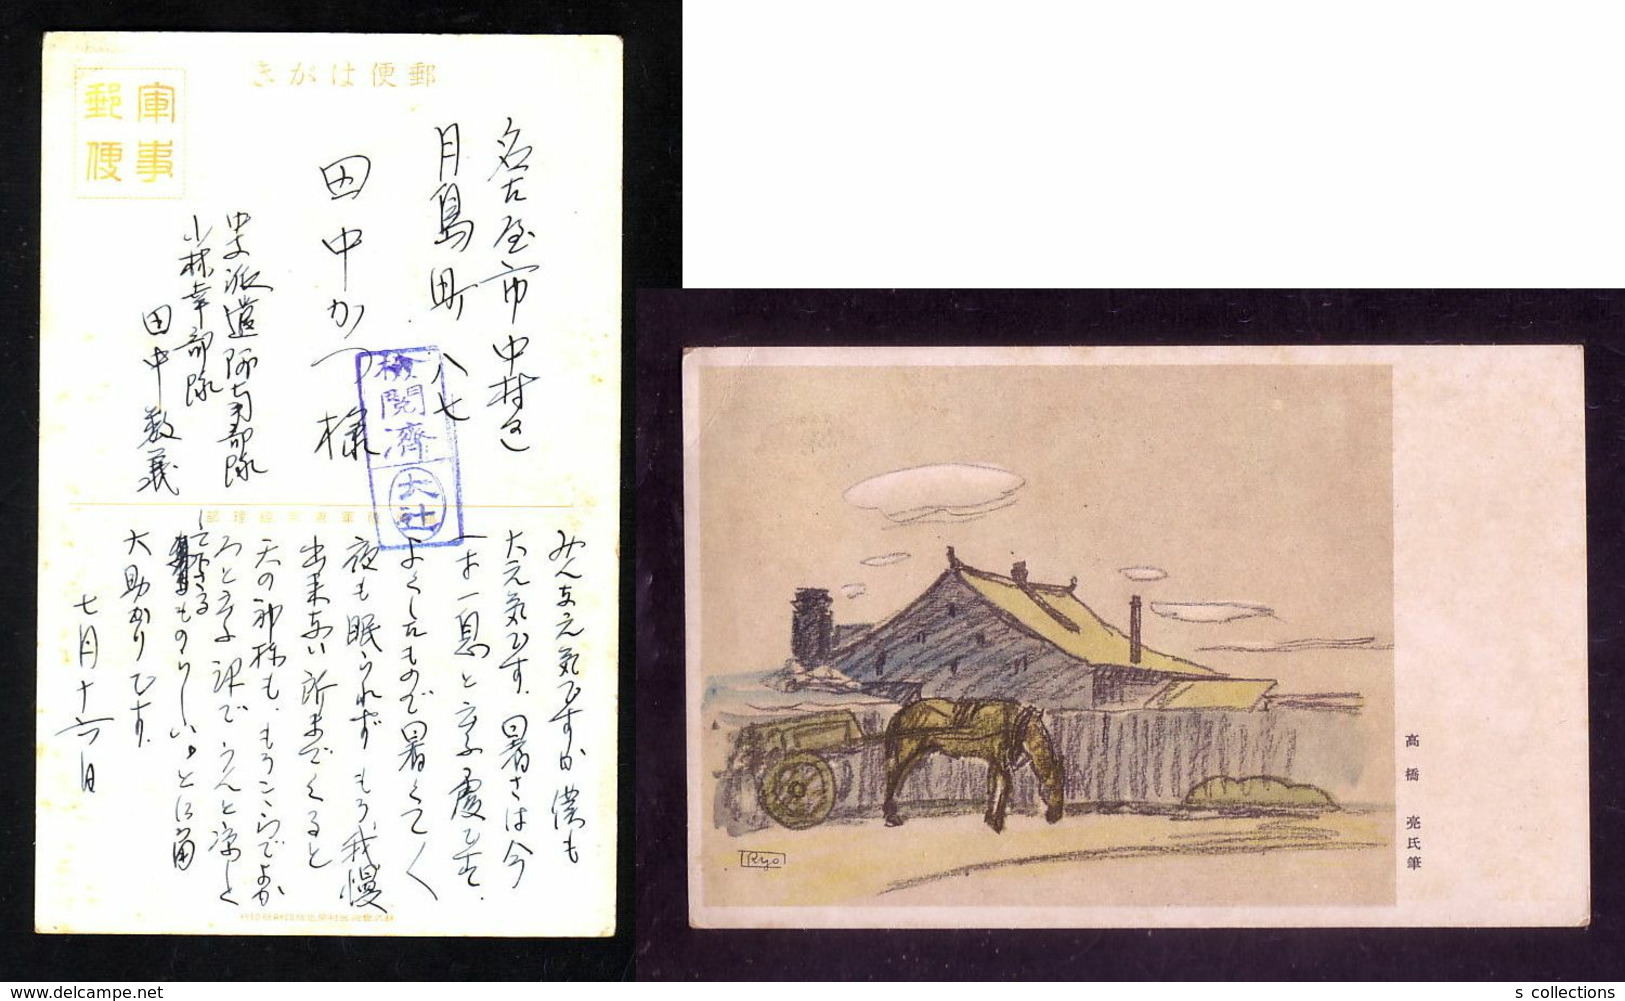 郵便はがき
軍事
郵便
名古屋市中村区
月島町八七
田中かつ様
検閲済
大辻
中支派遣
小林幸部隊
田中数義
みんな元気ですか 僕も
大元気です。暑さは今
一息と
よくしたもので暑くてく
夜も眠られず もう我慢
出来ない所までくると
天の神様も、もうここらでよか
ろと云ふ訳で うんと涼しく
して下さる
ものらしい、とに角
大助かりです。
七月十六日
高橋 亮氏筆
Ryo
s collections